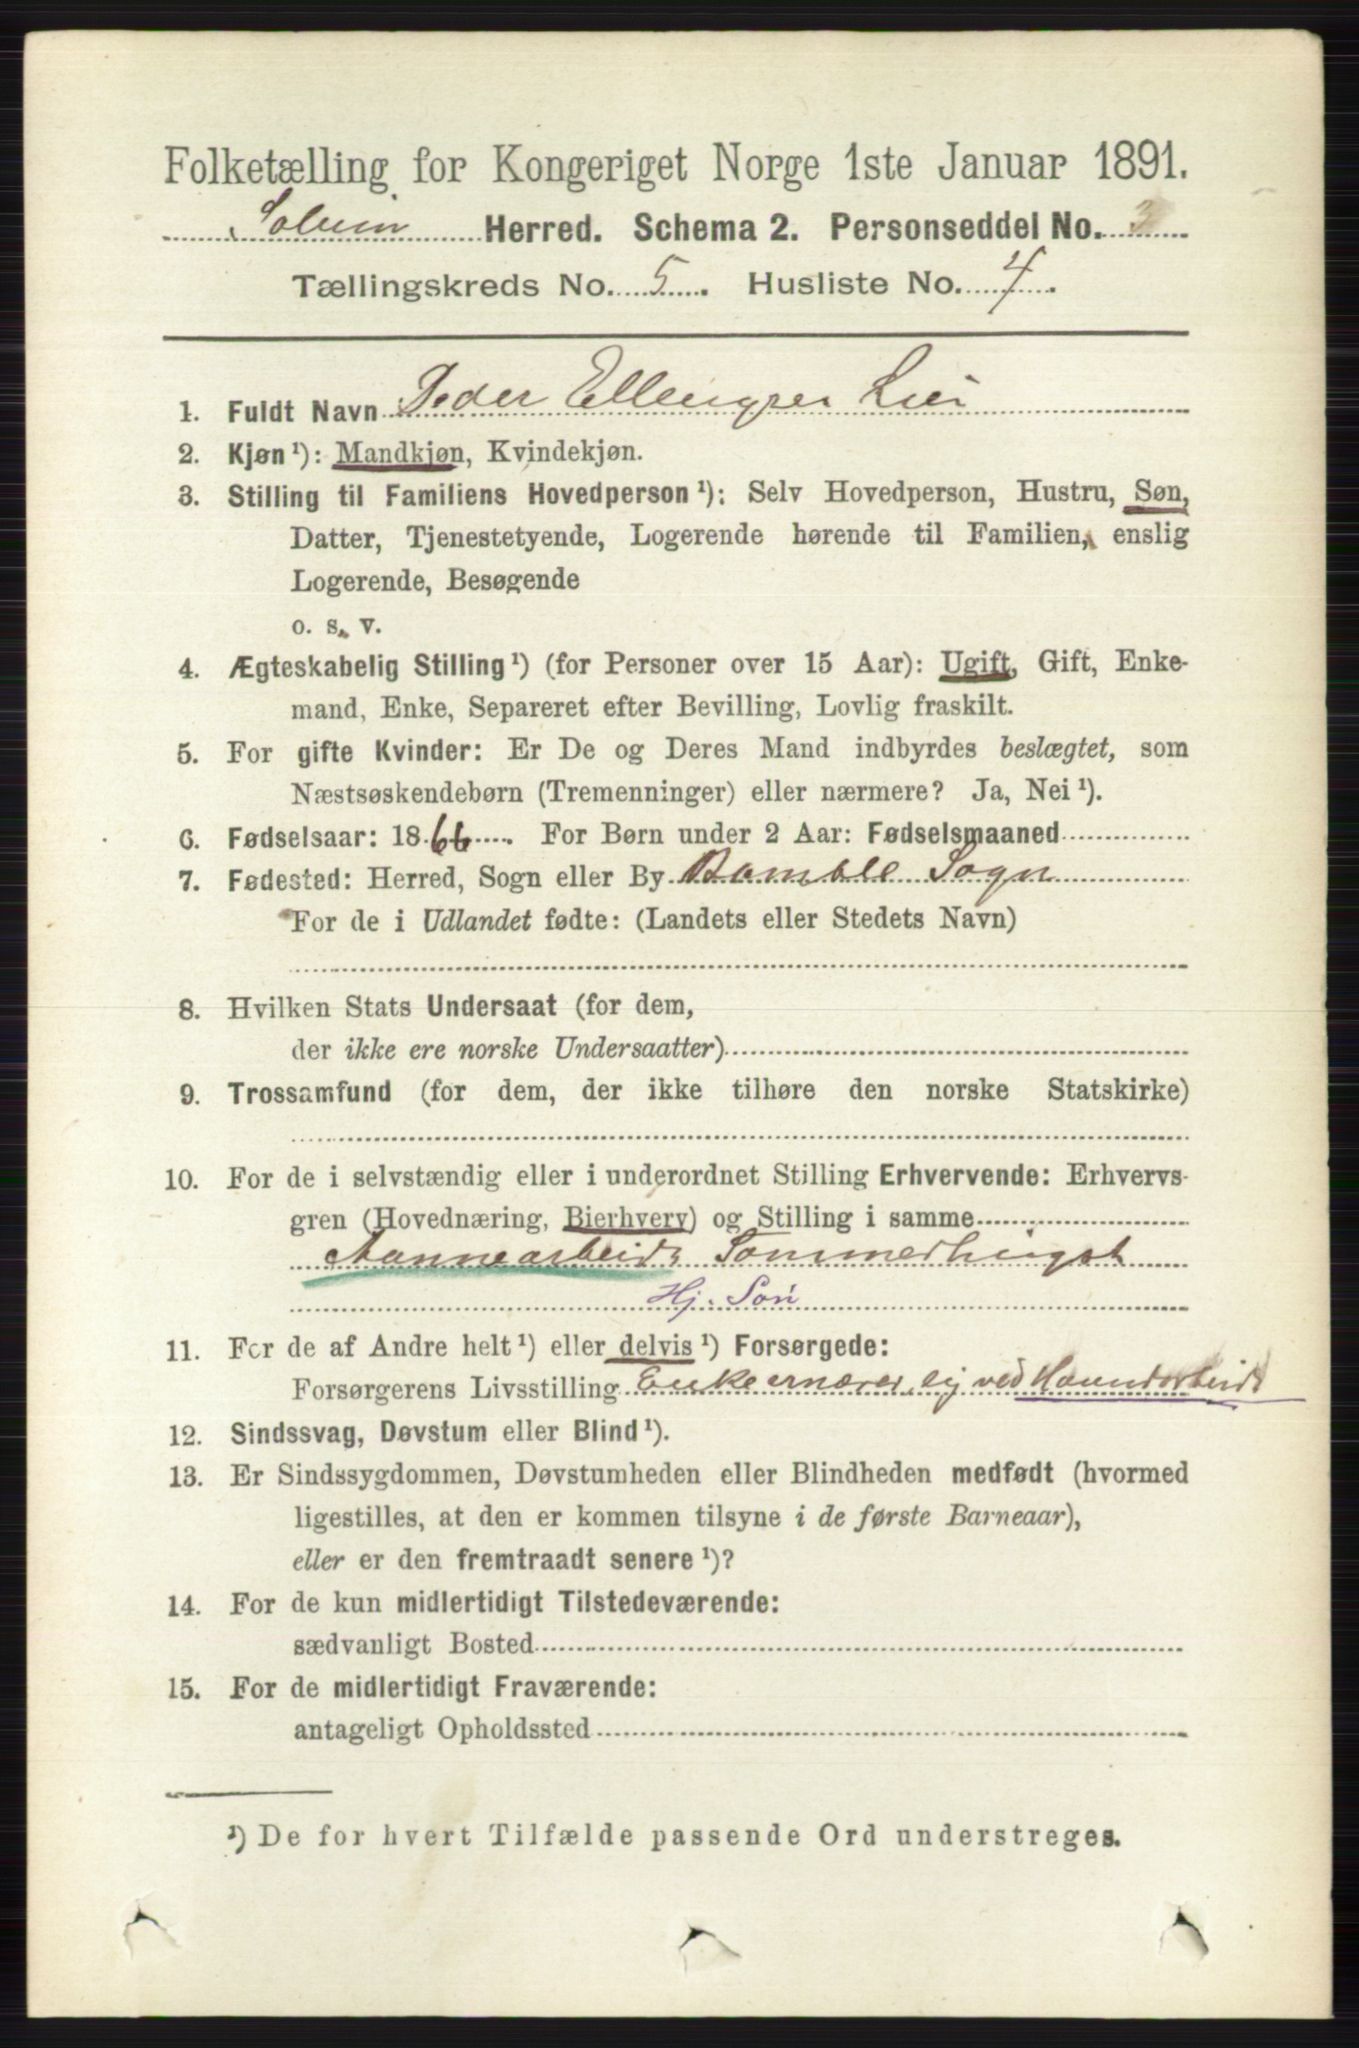 Folketælling for Kongeriget Norge 1ste Januar 1891.
Solum Herred. Schema 2. Personseddel No. 3
Tællingskreds No. 5. Husliste No. 4.
1. Fuldt Navn Peder Ellengsen Lier
2. Kjøn¹): Mandkjøn, Kvindekjøn.
3. Stilling til Familiens Hovedperson¹): Selv Hovedperson, Hustru, Søn,
Datter, Tjenestetyende, Logerende hørende til Familien, enslig
Logerende, Besøgende
o. s. v.
4. Ægteskabelig Stilling¹) (for Personer over 15 Aar): Ugift, Gift, Enke-
mand, Enke, Separeret efter Bevilling, Lovlig fraskilt.
5. For gifte Kvinder: Er De og Deres Mand indbyrdes beslægtet, som
Næstsøskendebørn (Tremenninger) eller nærmere? Ja, Nei¹).
6. Fødselsaar: 1866. For Børn under 2 Aar: Fødselsmaaned
7. Fødested: Herred, Sogn eller By Bamble Sogn
For de i Udlandet fødte: (Landets eller Stedets Navn)
8. Hvilken Stats Undersaat (for dem,
der ikke ere norske Undersaatter)
9. Trossamfund (for dem, der ikke tilhøre den norske Statskirke)
10. For de i selvstændig eller i underordnet Stilling Erhvervende: Erhvervs-
gren (Hovednæring, Bierhverv) og Stilling i samme
Hj. Søn
11. For de af Andre helt¹) eller delvis¹) Forsørgede:
Forsørgerens Livsstilling Enke ernærer sig ved Haandarbeide
12. Sindssvag, Døvstum eller Blind¹).
13. Er Sindssygdommen, Døvstumheden eller Blindheden medfødt (hvormed
ligestilles, at den er kommen tilsyne i de første Barneaar),
eller er den fremtraadt senere¹)?
14. For de kun midlertidigt Tilstedeværende:
sædvanligt Bosted
15. For de midlertidigt Fraværende:
antageligt Opholdssted
¹) De for hvert Tilfælde passende Ord understreges.